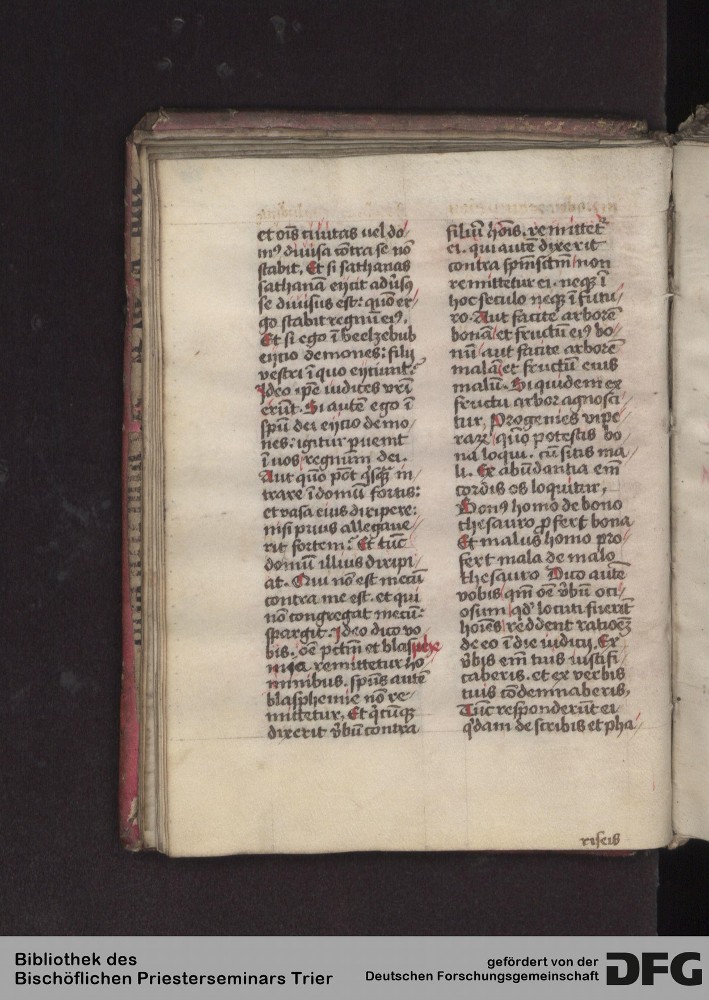 et oīs ciuitas uel do/
mꝰ diuisa cōtra se nō
stabit. Et si sathanas
sathanā eijcit adūsꝰ
se diuisus est: quō er/
go stabit regnū eiꝰ.
Et si ego ī beelzebub
eijcio demones: filij
vestri ī quo eijciunt:
Ideo ip̄e iudices vrī
erūt. Si autē ego ī
sp̄u dei eijcio demo/
nes: igitur ꝑuenit
ī uos regnum dei.
Aut quō pōt q̄sq̄ in/
trare ī domū fortis:
et vasa eius diripere:
nisi prius allegaue/
rit fortem: Et tūc
domū illius diripi/
at. Qui nō est mecū
contra me est. et qui
nō congregat mecū:
spargit. Ideo dico vo/
bis. oē pctm̄ et blasphe
mia remittetur ho
minibus. spūs autē
blasphemie nō re/
mittetur. Et q̄cūqꝫ
dixerit v̄bū contra
filiū hoīs. remittet᷑
ei. qui autē dixerit
contra sp̄m sctm̄ non
remittetur ei. neqꝫ ī
hoc seculo neqꝫ ī futu/
ro. Aut facite arborē
bonā et fructū eiꝰ bo/
nū aut facite arborē
malā et fructū eius
malū. Siquidem ex
fructu arbor agnosci/
tur. Progenies vipe/
raꝝ quō potestis bo/
na loqui. cū sitis ma/
li. Ex abūdantia em̄
cordis os loquitur.
Bonꝰ homo de bono
thesauro ꝓfert bona
Et malus homo pro/
fert mala de malo
thesauro. Dico autē
vobis qm̄ oē v̄bū oci/
osum qd' locuti fuerīt
hoīes reddent ratioēꝫ
de eo ī die iudicij. Ex
v̄bis em̄ tuis iustifi/
caberis. et ex verbis
tuis cōdemnaberis.
Tūc responderūt ei
q̄dam de scribis et pha/
riseis
Bibliothek des
Bischöflichen Priesterseminars Trier
gefördert von der
Deutschen Forschungsgemeinschaft
DFG